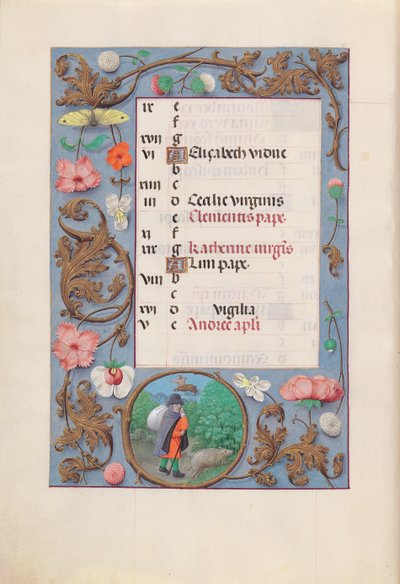 ix e
f
xvii g
vi A Elizabeth vidue
b
xiiii c
iii d Cecilie virginis
e Clementis pape
xi f
xix g Katherine virgis
A Lini pape
viii b
c
xvi d Vigilia
v e Andree apli